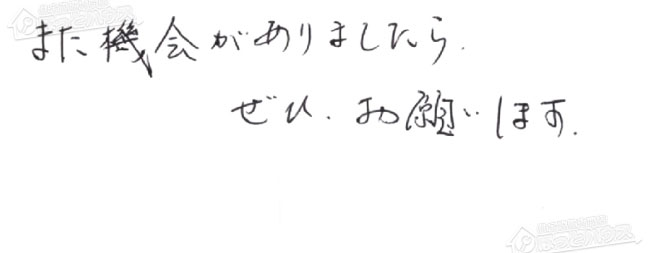 また機会がありましたら.
ぜひ.お願いします.